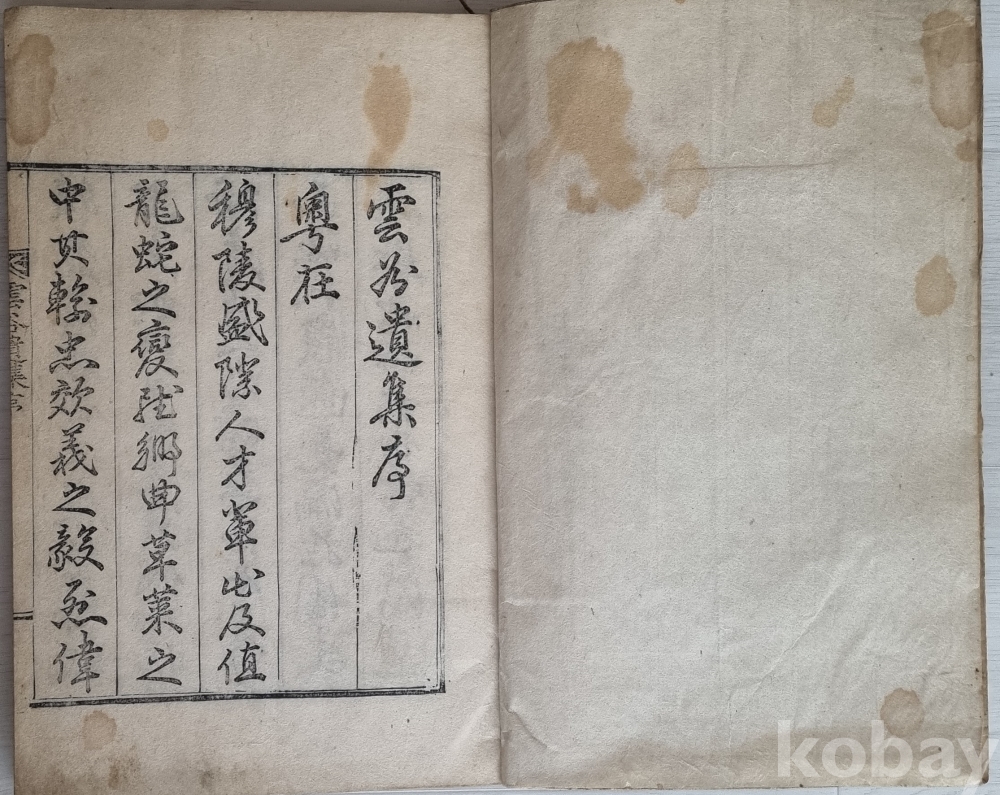 雲谷遺集序
粵在
穆陵盛際人才輩出及值
龍蛇之變雖鄉曲草萊之
中其輸忠效義之毅烈偉
雲谷遺集序
kobay